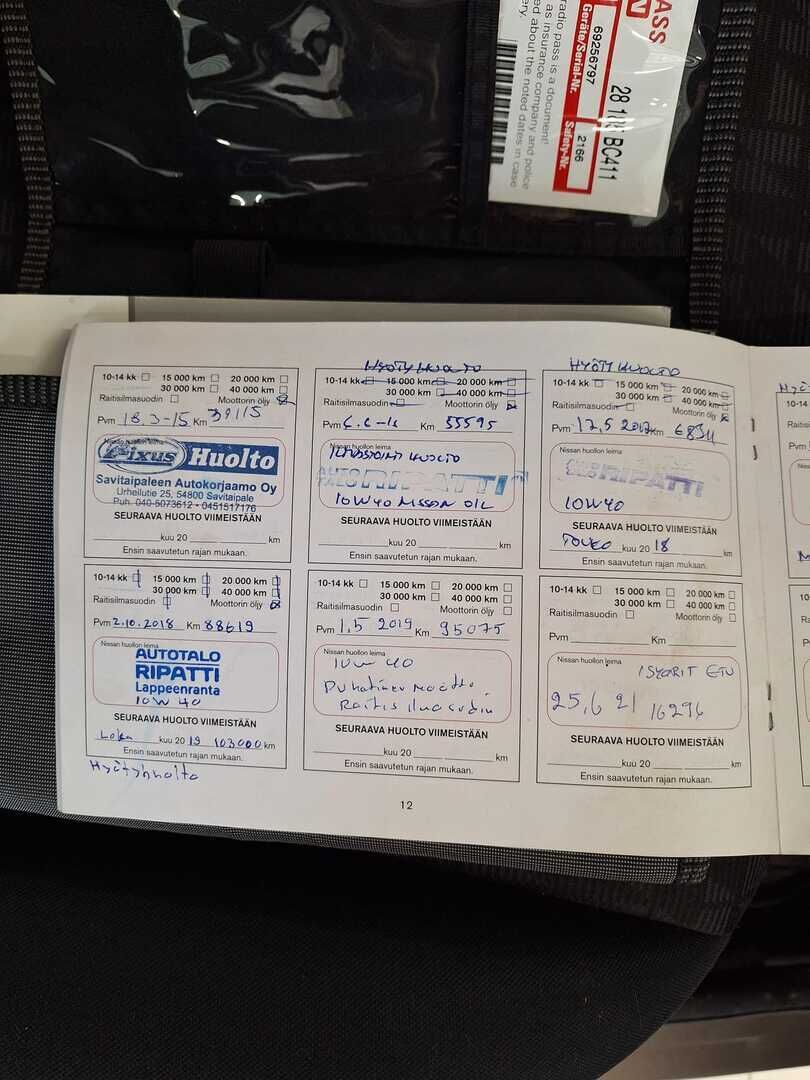 PASS
radio pass is a document!
as insurance company and police
ed about the noted dates in case
ery.
69256797
Geräte/Serial-Nr.
2166
Safety-Nr.
BC411
10-14 kk 15 000 km 20 000 km
30 000 km 40 000 km
Raitisilmasuodin Moottorin öljy
Pvm 18.3-15 Km 39115
Nissan huollon leima
Fixus Huolto
Savitaipaleen Autokorjaamo Oy
Urheilutie 25, 54800 Savitaipale
Puh. 040-5073612 • 0451517176
SEURAAVA HUOLTO VIIMEISTÄÄN
kuu 20 km
Ensin saavutetun rajan mukaan.
HYÖTYHUOLTO
10-14 kk 15 000 km 20 000 km
30 000 km 40 000 km
Raitisilmasuodin Moottorin öljy
Pvm Km 55595
Nissan huollon leima
HUOLTO
AUTOTALO RIPATTI
10W40 NISSAN OIL
SEURAAVA HUOLTO VIIMEISTÄÄN
kuu 20 km
Ensin saavutetun rajan mukaan.
HYÖTYHUOLTO
10-14 kk 15 000 km 20 000 km
30 000 km 40 000 km
Raitisilmasuodin Moottorin öljy
Pvm 17.5 2017 Km
Nissan huollon leima
RIPATTI
10W40
SEURAAVA HUOLTO VIIMEISTÄÄN
TOUKO kuu 20 18 km
Ensin saavutetun rajan mukaan.
10-14 kk 15 000 km 20 000 km
30 000 km 40 000 km
Raitisilmasuodin Moottorin öljy
Pvm 2.10.2018 Km 88619
Nissan huollon leima
AUTOTALO
RIPATTI
Lappeenranta
10W40
SEURAAVA HUOLTO VIIMEISTÄÄN
Loka kuu 20 19 103000 km
Ensin saavutetun rajan mukaan.
Hyötyhuolto
10-14 kk 15 000 km 20 000 km
30 000 km 40 000 km
Raitisilmasuodin Moottorin öljy
Pvm 1.5 2019 Km 95075
Nissan huollon leima
10W 40
Raitis ilmasuodin
SEURAAVA HUOLTO VIIMEISTÄÄN
kuu 20 km
Ensin saavutetun rajan mukaan.
10-14 kk 15 000 km 20 000 km
30 000 km 40 000 km
Raitisilmasuodin Moottorin öljy
Pvm Km
Nissan huollon leima
ETU
25.6 21
SEURAAVA HUOLTO VIIMEISTÄÄN
kuu 20 km
Ensin saavutetun rajan mukaan.
12